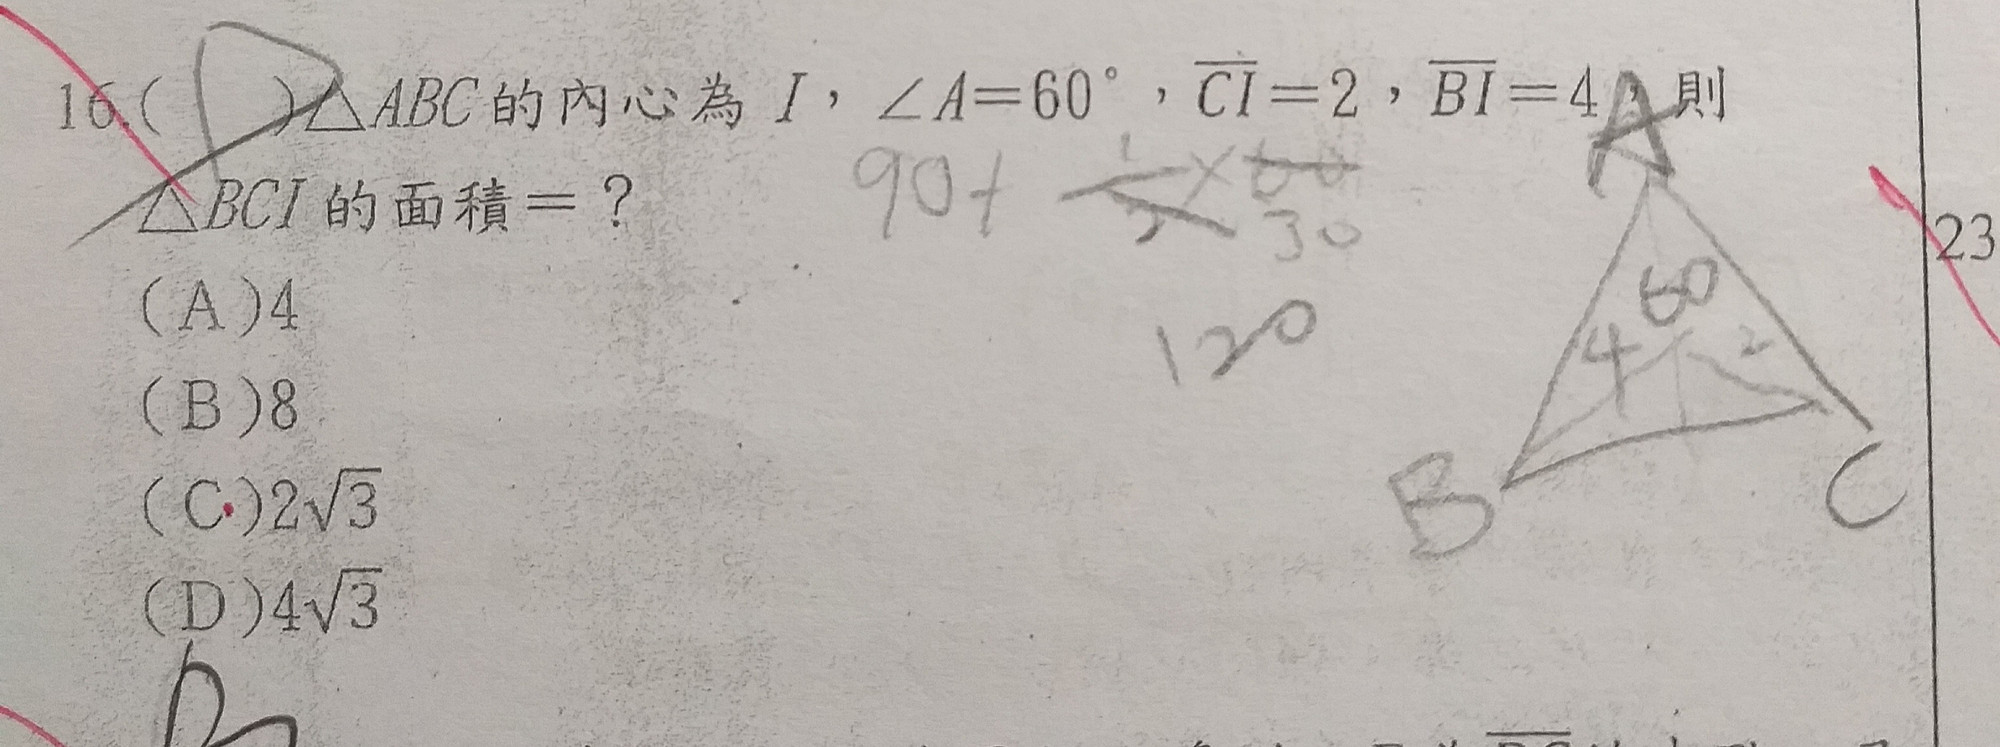 16.( )△ABC的內心為 I，∠A=60°，CI=2，BI=4，則
△BCI 的面積=？
90+ 1/2×60
30
120
(A)4
(B)8
(C)2√3
(D)4√3
A
60
4 2
B C
23